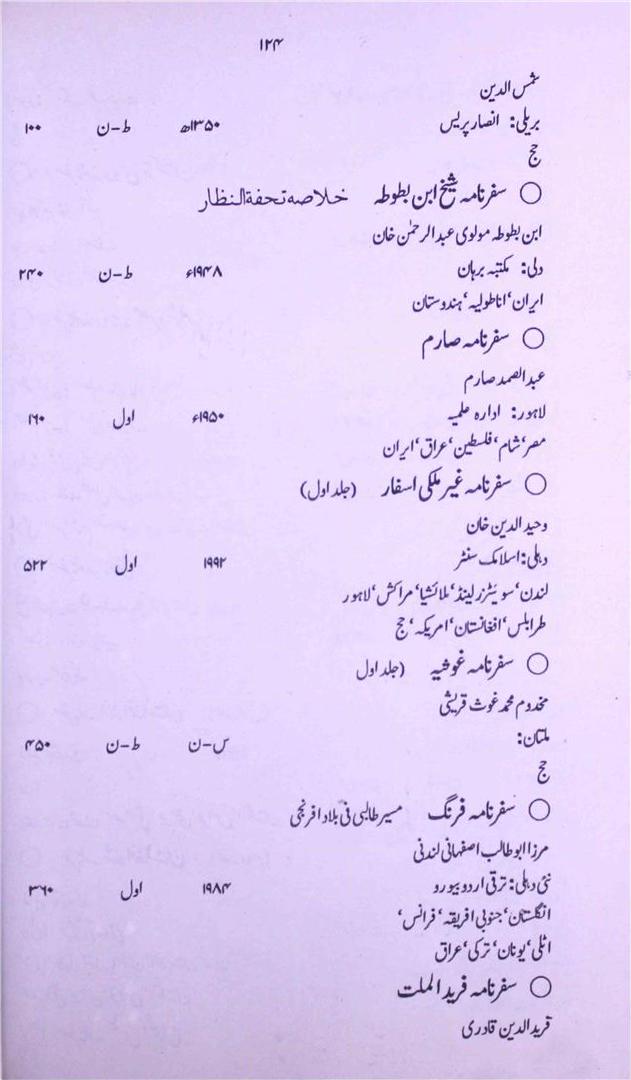 ۱۲۴
شمس الدین
بریلی: انصار پریس ۱۳۵۰ھ ط-ن ۱۰۰
حج
○ سفرنامہ شیخ ابن بطوطہ خلاصہ تحفۃ النظار
ابن بطوطہ مولوی عبدالرحمٰن خان
دلی: مکتبہ برہان ۱۹۴۸ء ط-ن ۲۴۰
ایران، اناطولیہ، ہندوستان
○ سفرنامہ صارم
عبدالصمد صارم
لاہور: ادارہ علمیہ ۱۹۵۰ء اول ۱۶۰
مصر، شام، فلسطین، عراق، ایران
○ سفرنامہ غیر ملکی اسفار (جلد اول)
وحید الدین خان
دہلی: اسلامک سنٹر ۱۹۹۲ اول ۵۲۲
لندن، سویٹزرلینڈ، ملائشیا، مراکش، لاہور
طرابلس، افغانستان، امریکہ، حج
○ سفرنامہ غوشیہ (جلد اول
مخدوم محمد غوث قریشی
ملتان: س-ن ط-ن ۴۵۰
حج
○ سفرنامہ فرنگ مسیر طالبی فی بلاد افرنجی
مرزا ابو طالب اصفہانی لندنی
نئی دہلی: ترقی اردو بیورو ۱۹۸۴ اول ۳۶۰
انگلستان، جنوبی افریقہ، فرانس،
اٹلی، یونان، ترکی، عراق
○ سفرنامہ فرید الملت
فرید الدین قادری